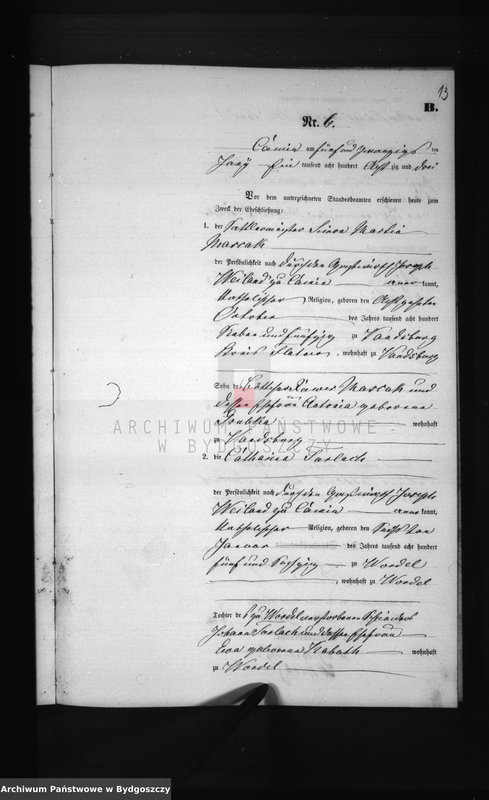 13
B.
Nr. 6.
Camin am fünf und zwanzigsten
tausend acht hundert acht zig und drei
Vor dem unterzeichneten Standesbeamten erschienen heute zum
Zweck der Eheschließung:
1. der Sattlermeister Simon Martin
Massak
der Persönlichkeit nach durch den Gastwirth Joseph
Weiland zu Camin kannt,
katholischer Religion, geboren den
October des Jahres tausend acht hundert
sieben und fünfzig zu Vandsburg
Kreis Flatow, wohnhaft zu Vandsburg
Sohn des Massak und
dessen Ehefrau Antonia geborene
wohnhaft
zu Vandsburg
2. die Catharina Torlach
der Persönlichkeit nach durch den Gastwirth Joseph
Weiland zu Camin kannt,
katholischer Religion, geboren den sechsten
Januar des Jahres tausend acht hundert
fünf und sechzig zu Wordel
, wohnhaft zu Wordel
Tochter des zu Wordel verstorbenen
Johann Torlach und dessen Ehefrau
Eva geborene Kabath wohnhaft
zu Wordel
ARCHIWUM PAŃSTWOWE
W BYDGOSZCZY
Archiwum Państwowe w Bydgoszczy